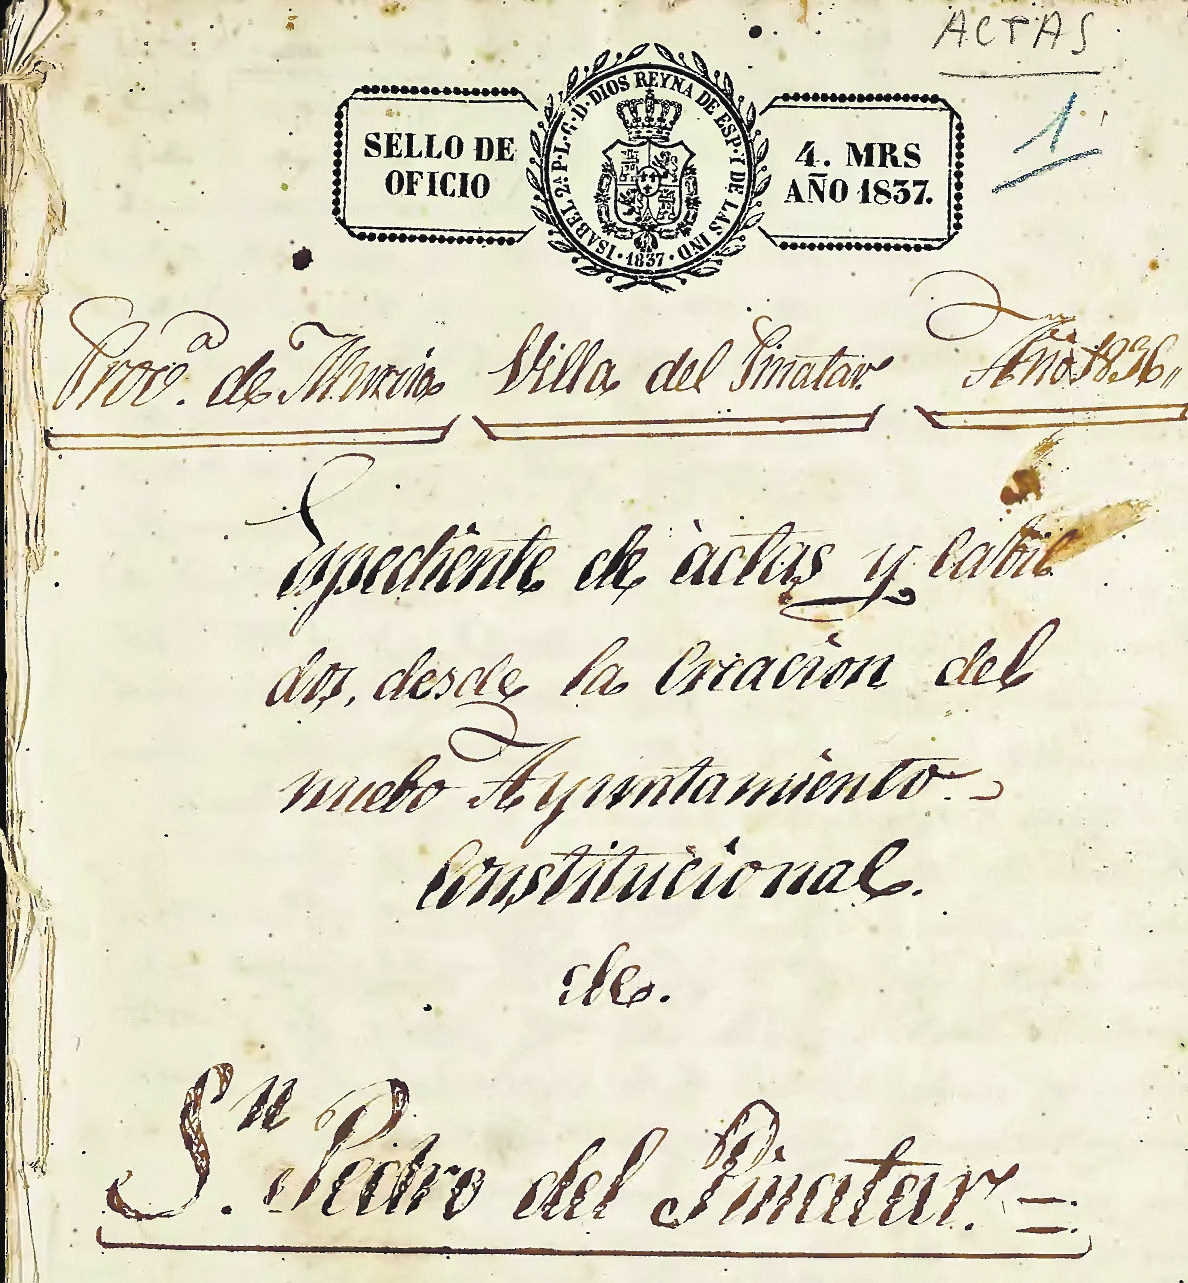 ACTAS
1
SELLO DE
OFICIO
ISABEL 2ª P. L. G. D. DIOS REYNA DE ESP. Y DE LAS IND
· 1837 ·
4. MRS
AÑO 1837.
Provª. de Murcia Villa del Pinatar Año 1836,,
Espediente de àctas y Cabil
dos, desde la Creacion del
nuebo Ayuntamiento
Constitucional.
de.
Sn. Pedro del Pinatar. =